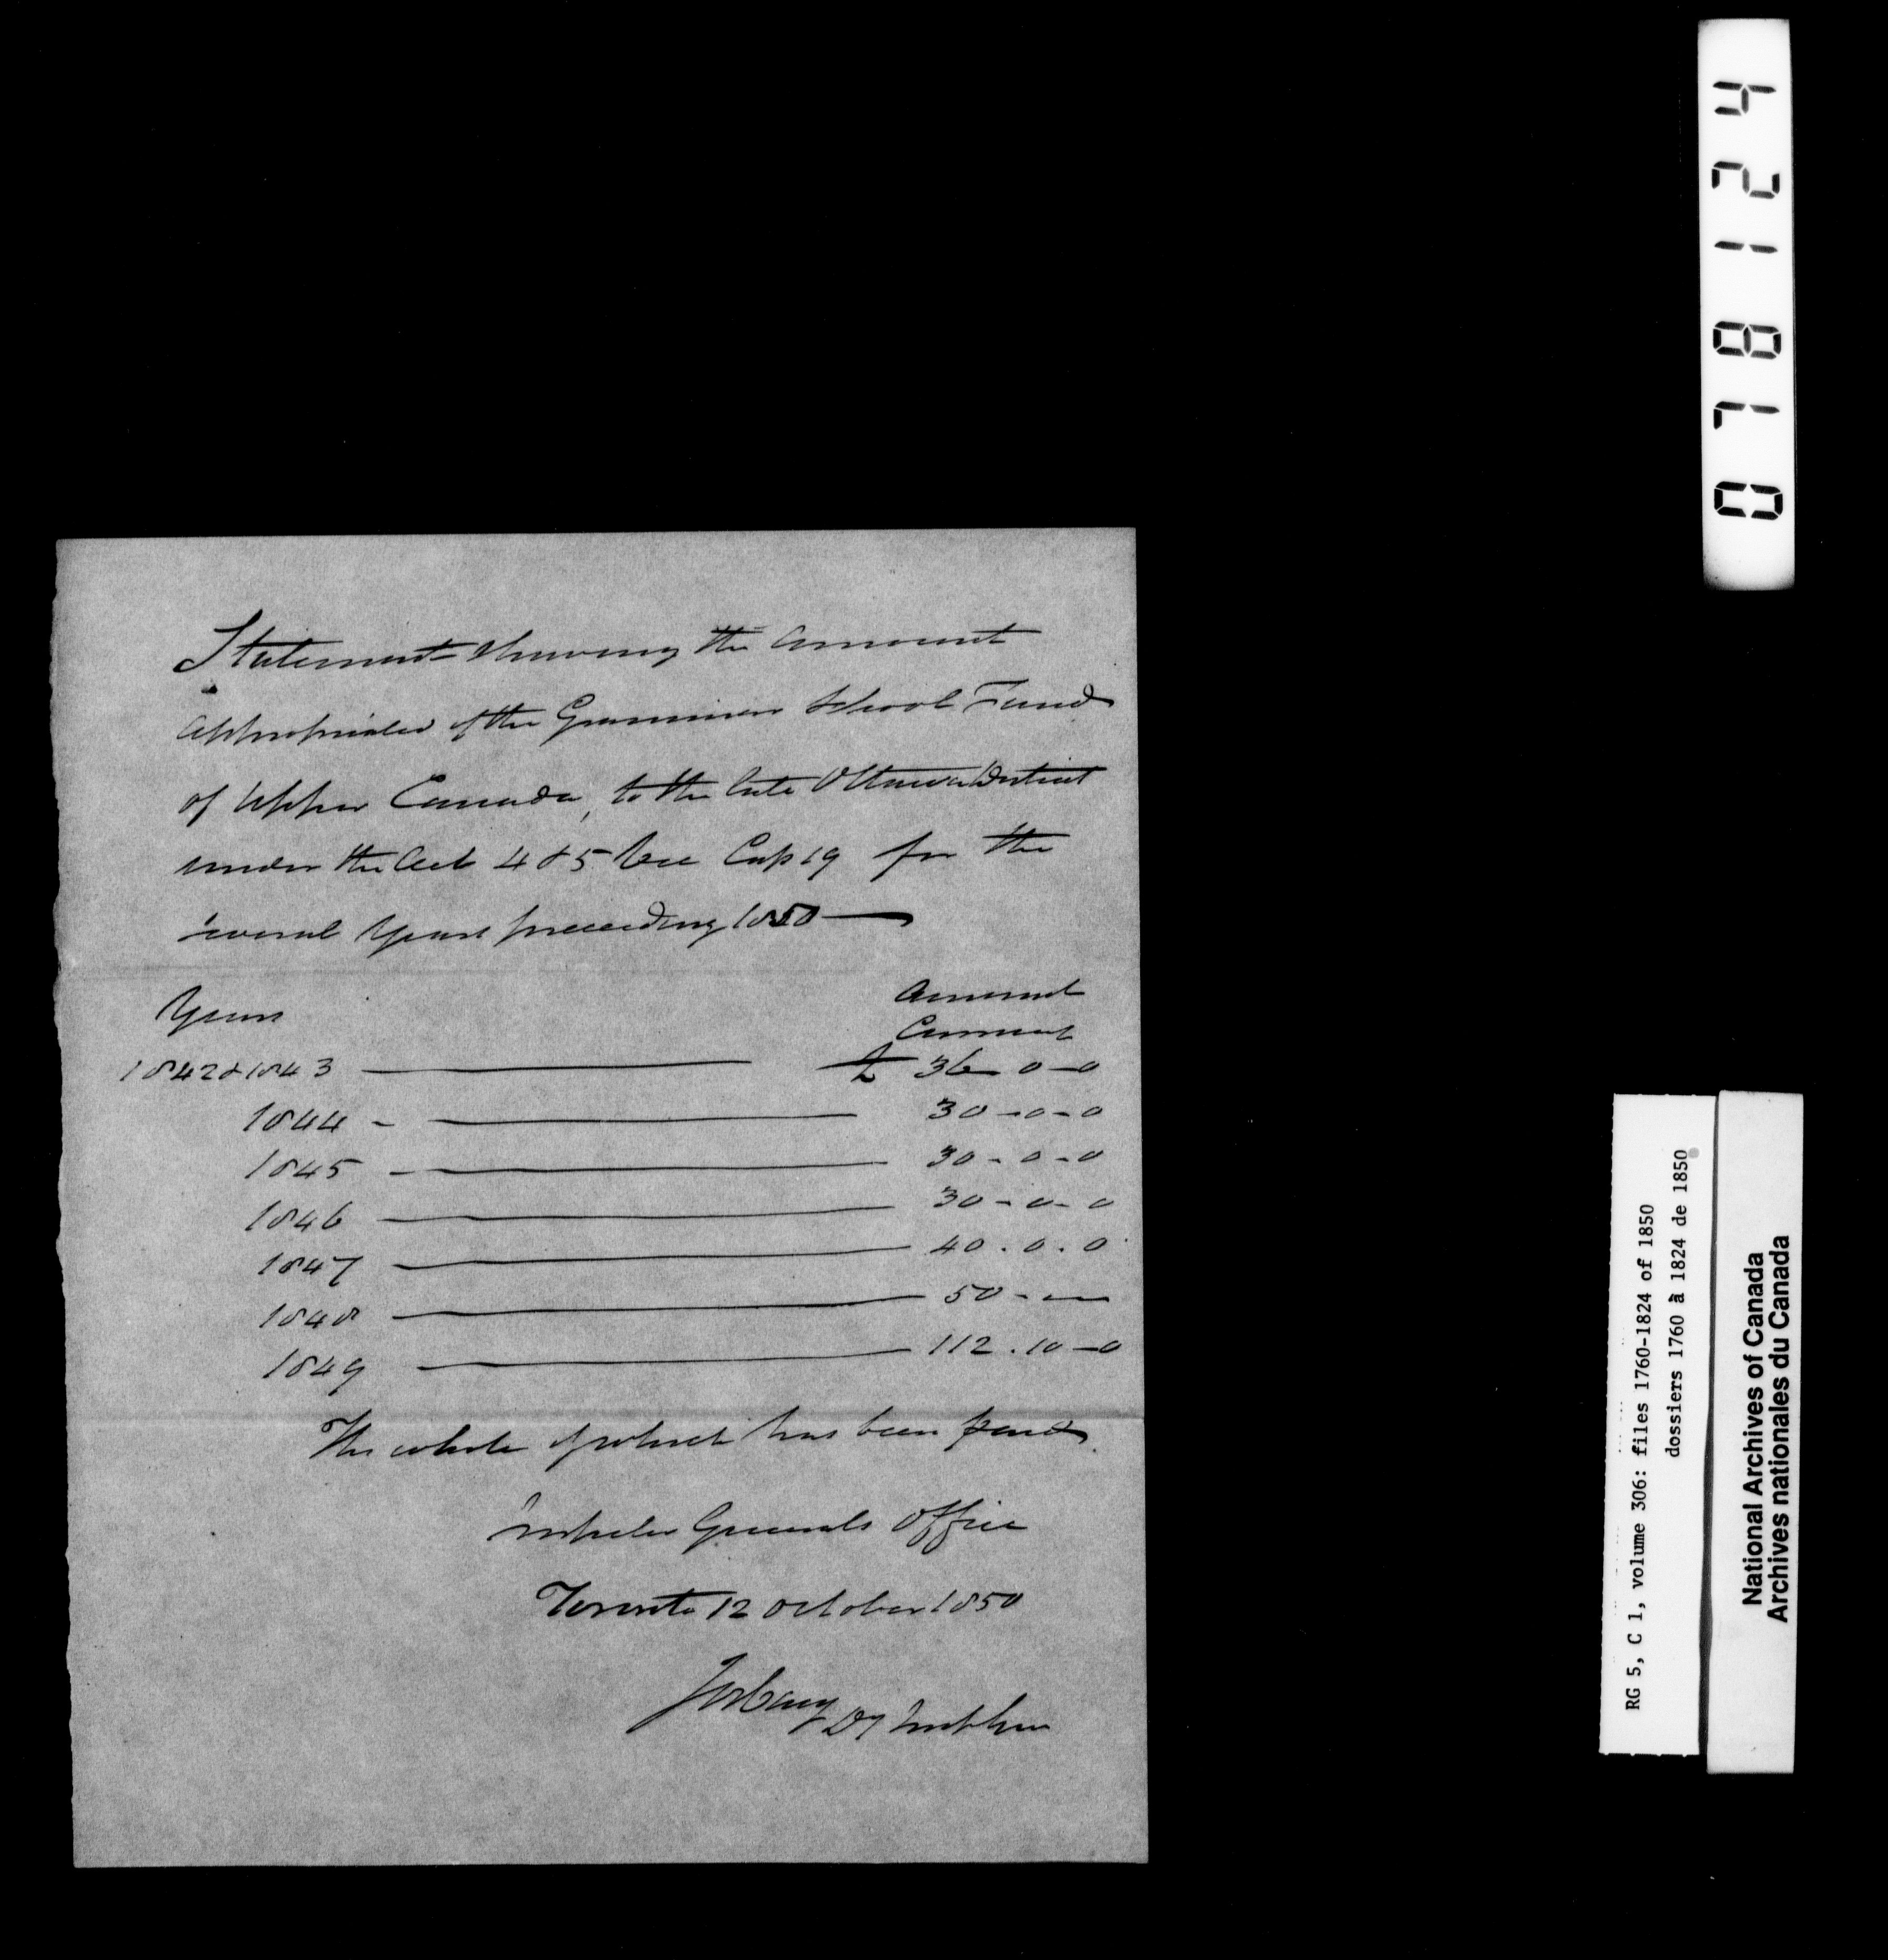 Statement shewing the Amount
appropriated of the Grammar School Fund
of Upper Canada, to the late Ottawa District
under the Act 4 & 5 Vic Cap 19 for the
several Years preceeding 1850
Years
Amount
Currency
1842 & 1843 — £ 36 - 0 - 0
1844 - — 30 - 0 - 0
1845 - — 30 - 0 - 0
1846 — 30 - 0 - 0
1847 — 40 . 0 . 0
1848 — 50 - — 
1849 — 112 . 10 - 0
The whole of which has been paid.
Inspector Generals Office
Toronto 12 October 1850
Jos Cary
Dy
078124
RG 5, C 1, volume 306: files 1760-1824 of 1850
dossiers 1760 à 1824 de 1850
National Archives of Canada
Archives nationales du Canada